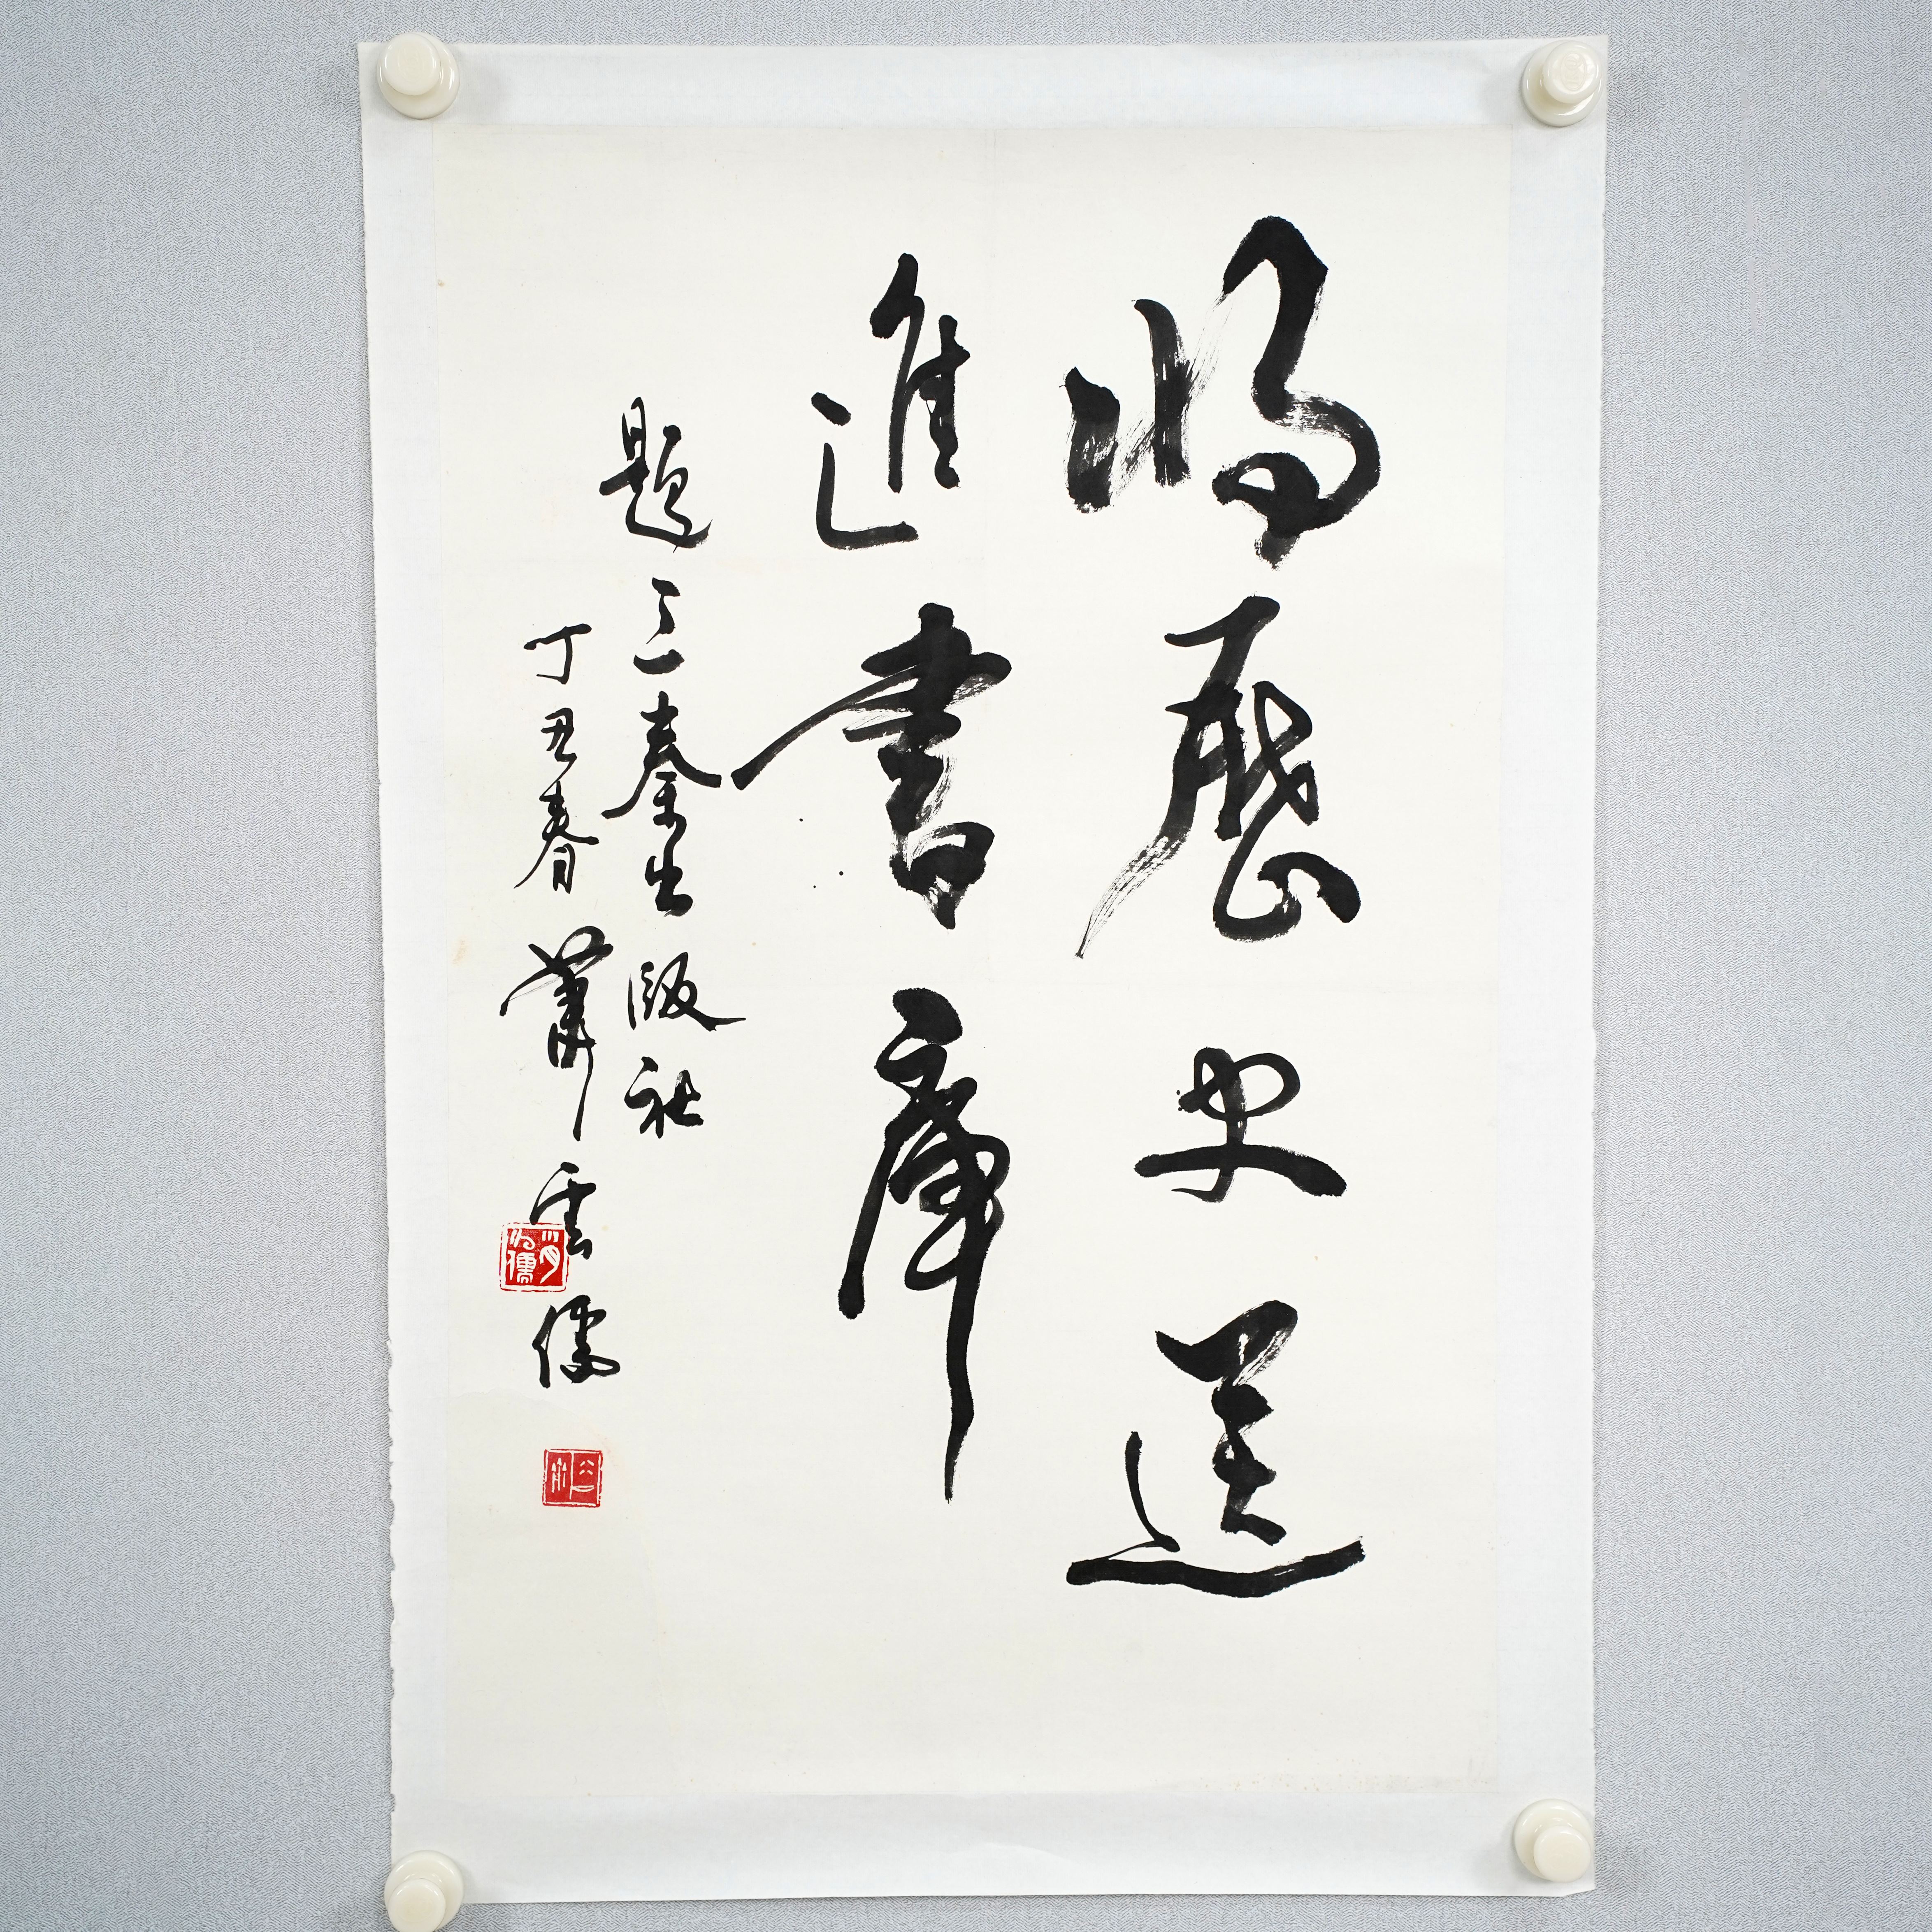 將歷史送
進書庫
題三秦出版社
丁丑春 蕭雲儒